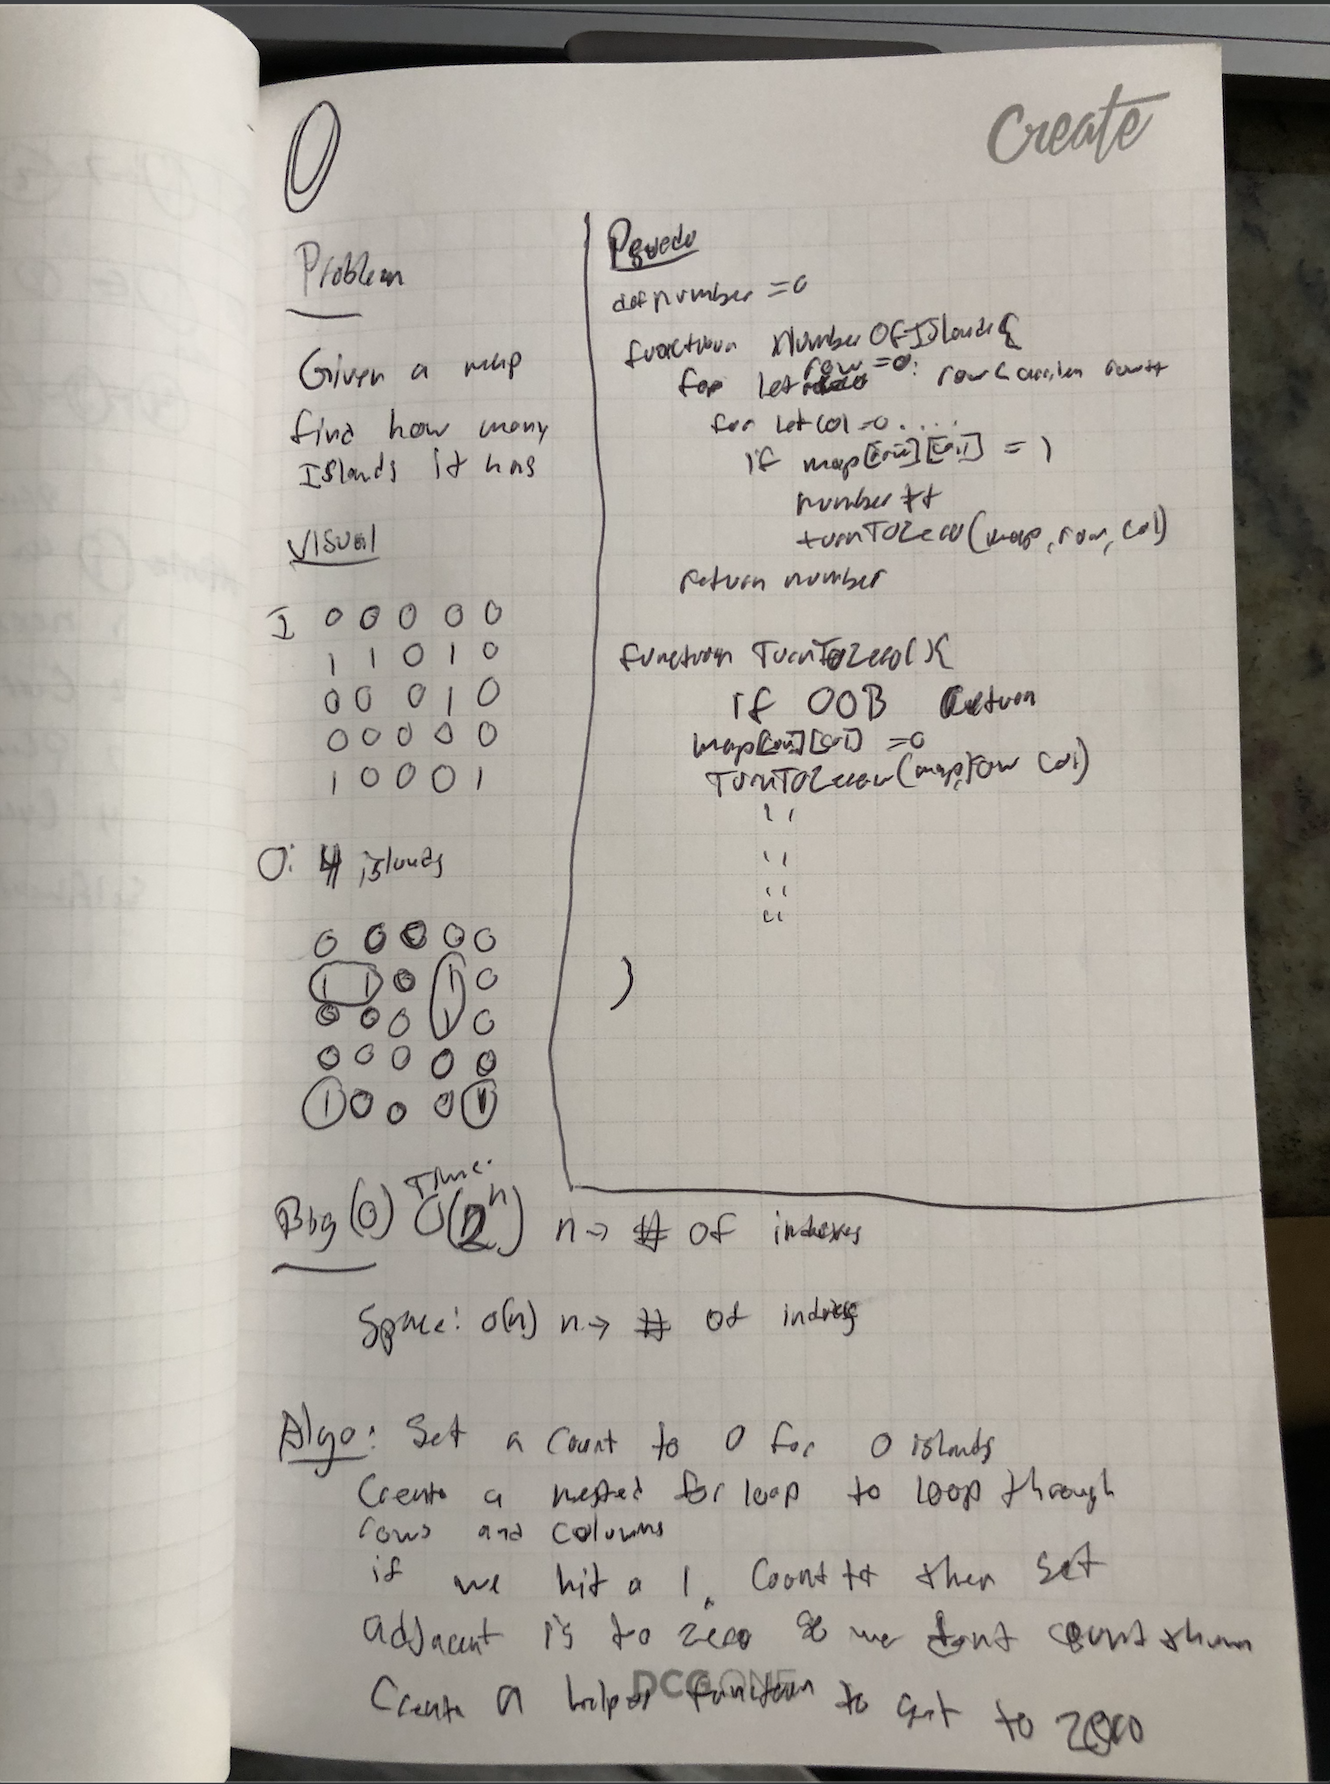 Create
Problem
Given a map
find how many
Islands it has
Visual
I 0 0 0 0 0
1 1 0 1 0
0 0 0 1 0
0 0 0 0 0
1 0 0 0 1
O: 4 islands
0 0 0 0 0
1 1 0 1 0
0 0 0 1 0
0 0 0 0 0
1 0 0 0 1
Psuedo
def number = 0
function NumberOfIslands{
for let row = 0: row < row++
for let col = 0 ....
if map[row][col] = 1
number ++
turnToZero(map, row, col)
return number
function TurnToZero(){
if OOB Return
map[row][col] = 0
TurnToZero(map, row col)
''
''
''
''
)
Big(O) Time: O(2^n) n → # of indexes
Space: O(n) n → # of indexes
Algo: Set a count to 0 for 0 islands
Create a nested for loop to loop through
rows and columns
if we hit a 1, Count ++ then set
adjacent 1's to zero so we dont count them
DCG ONE
Create a helper function to set to zero